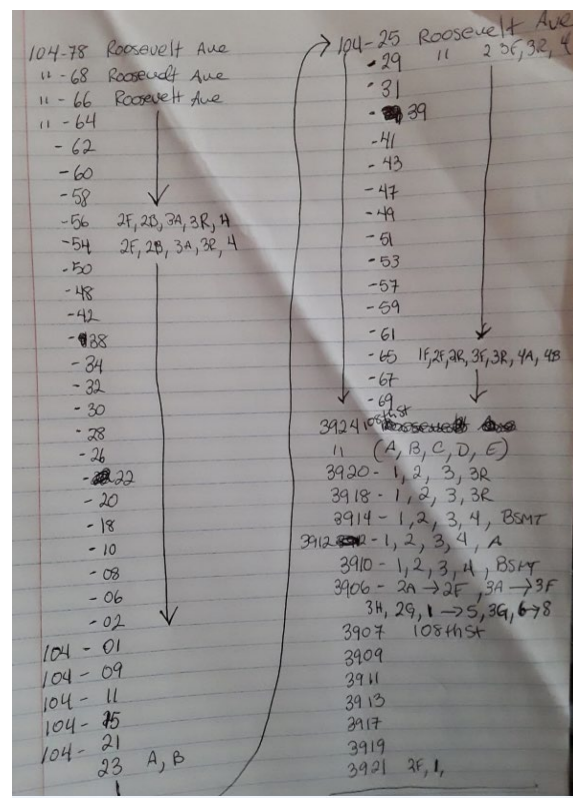 104-78 Roosevelt Ave
" -68 Roosevelt Ave
" -66 Roosevelt Ave
" -64
-62
-60
-58
-56 2F, 2B, 3A, 3R, 4
-54 2F, 2B, 3A, 3R, 4
-50
-48
-42
-38
-34
-32
-30
-28
-26
-22
-20
-18
-10
-08
-06
-02
104-01
104-09
104-11
104-15
104-21
23 A, B
104-25 Roosevelt Ave
-29 " 2 3F, 3R, 4
-31
-39
-41
-43
-47
-49
-51
-53
-57
-59
-61
-65 1F, 2F, 2R, 3F, 3R, 4A, 4B
-67
-69
3924 108th st
" (A, B, C, D, E)
3920 - 1, 2, 3, 3R
3918 - 1, 2, 3, 3R
3914 - 1, 2, 3, 4, BSMT
3912 - 1, 2, 3, 4, A
3910 - 1, 2, 3, 4, BSMT
3906 - 2A → 2F, 3A → 3F
3H, 2G, 1 → 5, 3G, 6 → 8
3907 108th st
3909
3911
3913
3917
3919
3921 2F, 1,